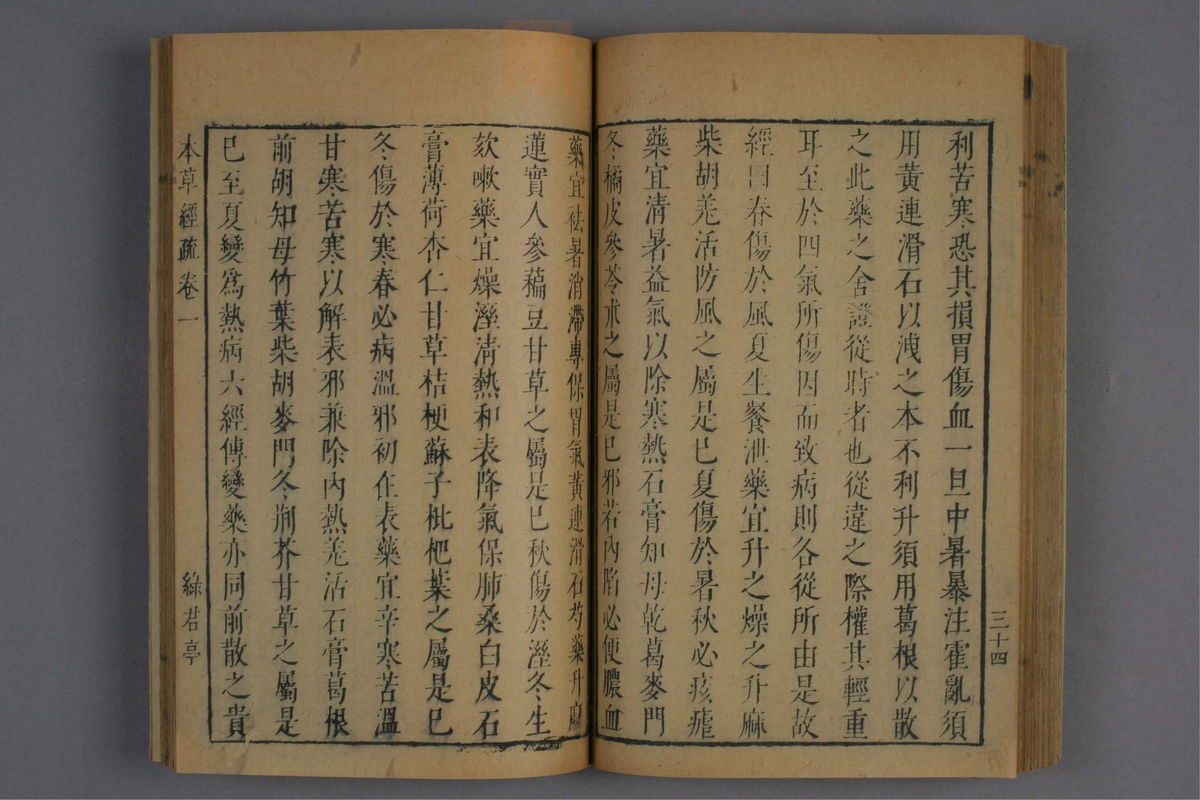 三十四
利苦寒恐其損胃傷血一旦中暑暴注霍亂須
用黃連滑石以洩之本不利升須用葛根以散
之此藥之舍證從時者也從違之際權其輕重
耳至於四氣所傷因而致病則各從所由是故
經曰春傷於風夏生飱泄藥宜升之燥之升麻
柴胡羌活防風之屬是巳夏傷於暑秋必痎瘧
藥宜清暑益氣以除寒熱石膏知母乾葛麥門
冬橘皮參苓朮之屬是巳邪若內陷必便膿血
藥宜祛暑消滯專保胃氣黃連滑石芍藥升麻
蓮實人參藊豆甘草之屬是巳秋傷於溼冬生
欬嗽藥宜燥溼清熱和表降氣保肺桑白皮石
膏薄荷杏仁甘草桔梗蘇子枇杷葉之屬是巳
冬傷於寒春必病溫邪初在表藥宜辛寒苦溫
甘寒苦寒以解表邪兼除內熱羌活石膏葛根
前胡知母竹葉柴胡麥門冬荊芥甘草之屬是
巳至夏變爲熱病六經傳變藥亦同前散之貴
本草經疏 卷一 綠君亭